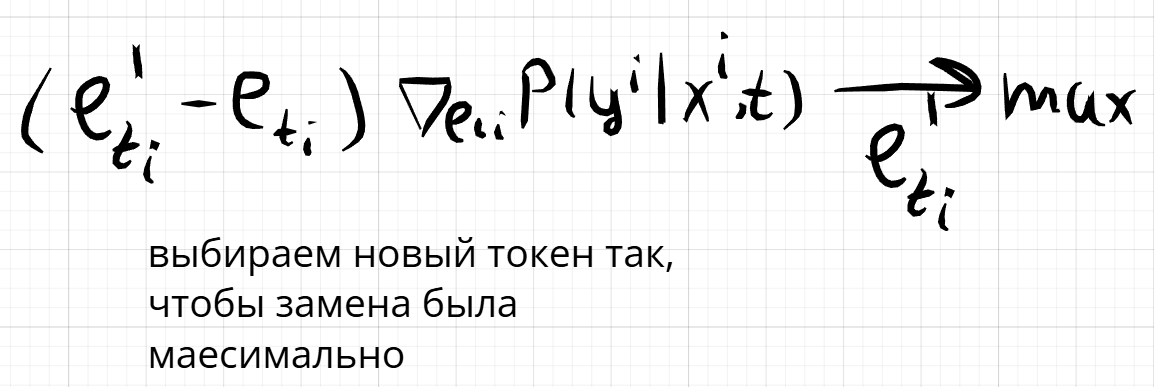 (e'_{t_i} - e_{t_i}) ∇_{e_{t_i}} P(y^i | x^i, t) → max
e'_{t_i}
выбираем новый токен так,
чтобы замена была
маесимально